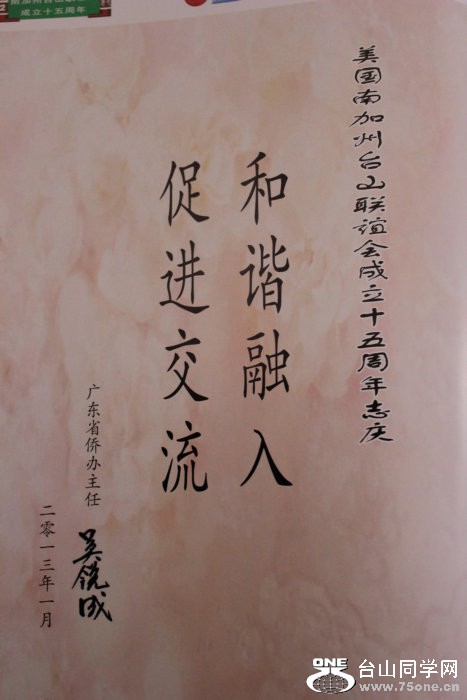 成立十五周年
美国南加州台山联谊会成立十五周年志庆
和谐融入
促进交流
广东省侨办主任
吴锐成
二零一三年一月
ONE
台山同学网
www.75one.cn